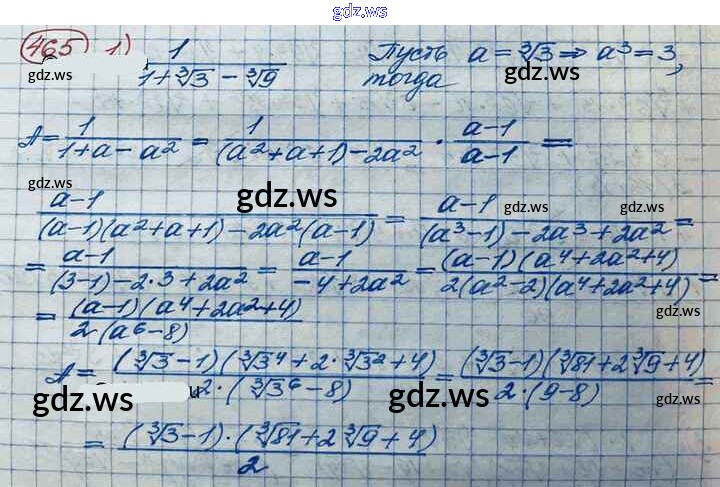 gdz.ws
465 1) 1/(1+∛3 − ∛9) Пусть a = ∛3 ⇒ a³ = 3,
gdz.ws тогда gdz.ws gdz.ws
A = 1/(1+a−a²) = 1/((a²+a+1)−2a²) · (a−1)/(a−1) =
gdz.ws gdz.ws gdz.ws gdz.ws
(a−1)/((a−1)(a²+a+1)−2a²(a−1)) = (a−1)/((a³−1)−2a³+2a²) =
= (a−1)/((3−1)−2·3+2a²) = (a−1)/(−4+2a²) = ((a−1)(a⁴+2a²+4))/(2(a²−2)(a⁴+2a²+4)) =
= ((a−1)(a⁴+2a²+4))/(2·(a⁶−8))
gdz.ws
A = ((∛3−1)(∛3⁴+2·∛3²+4))/(2·(∛3⁶−8)) = ((∛3−1)(∛81+2∛9+4))/(2·(9−8)) =
gdz.ws gdz.ws gdz.ws gdz.ws
= ((∛3−1)·(∛81+2∛9+4))/2